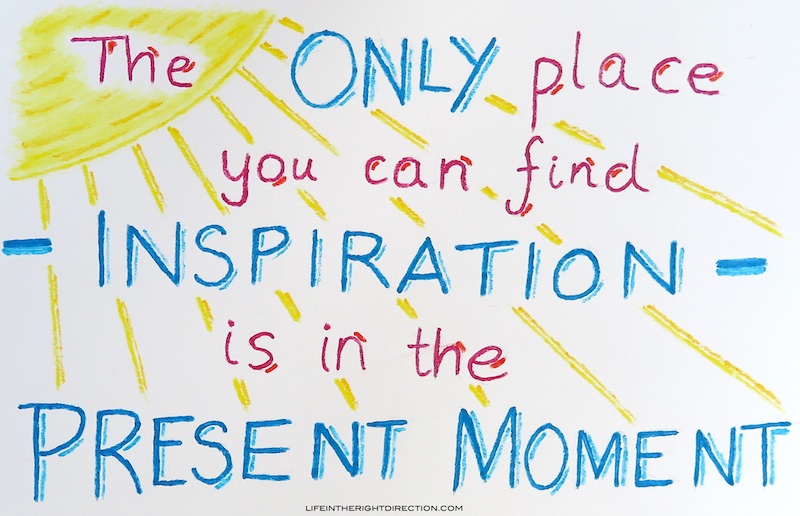 The ONLY place
you can find
- INSPIRATION -
is in the
PRESENT MOMENT
LIFEINTHERIGHTDIRECTION.COM